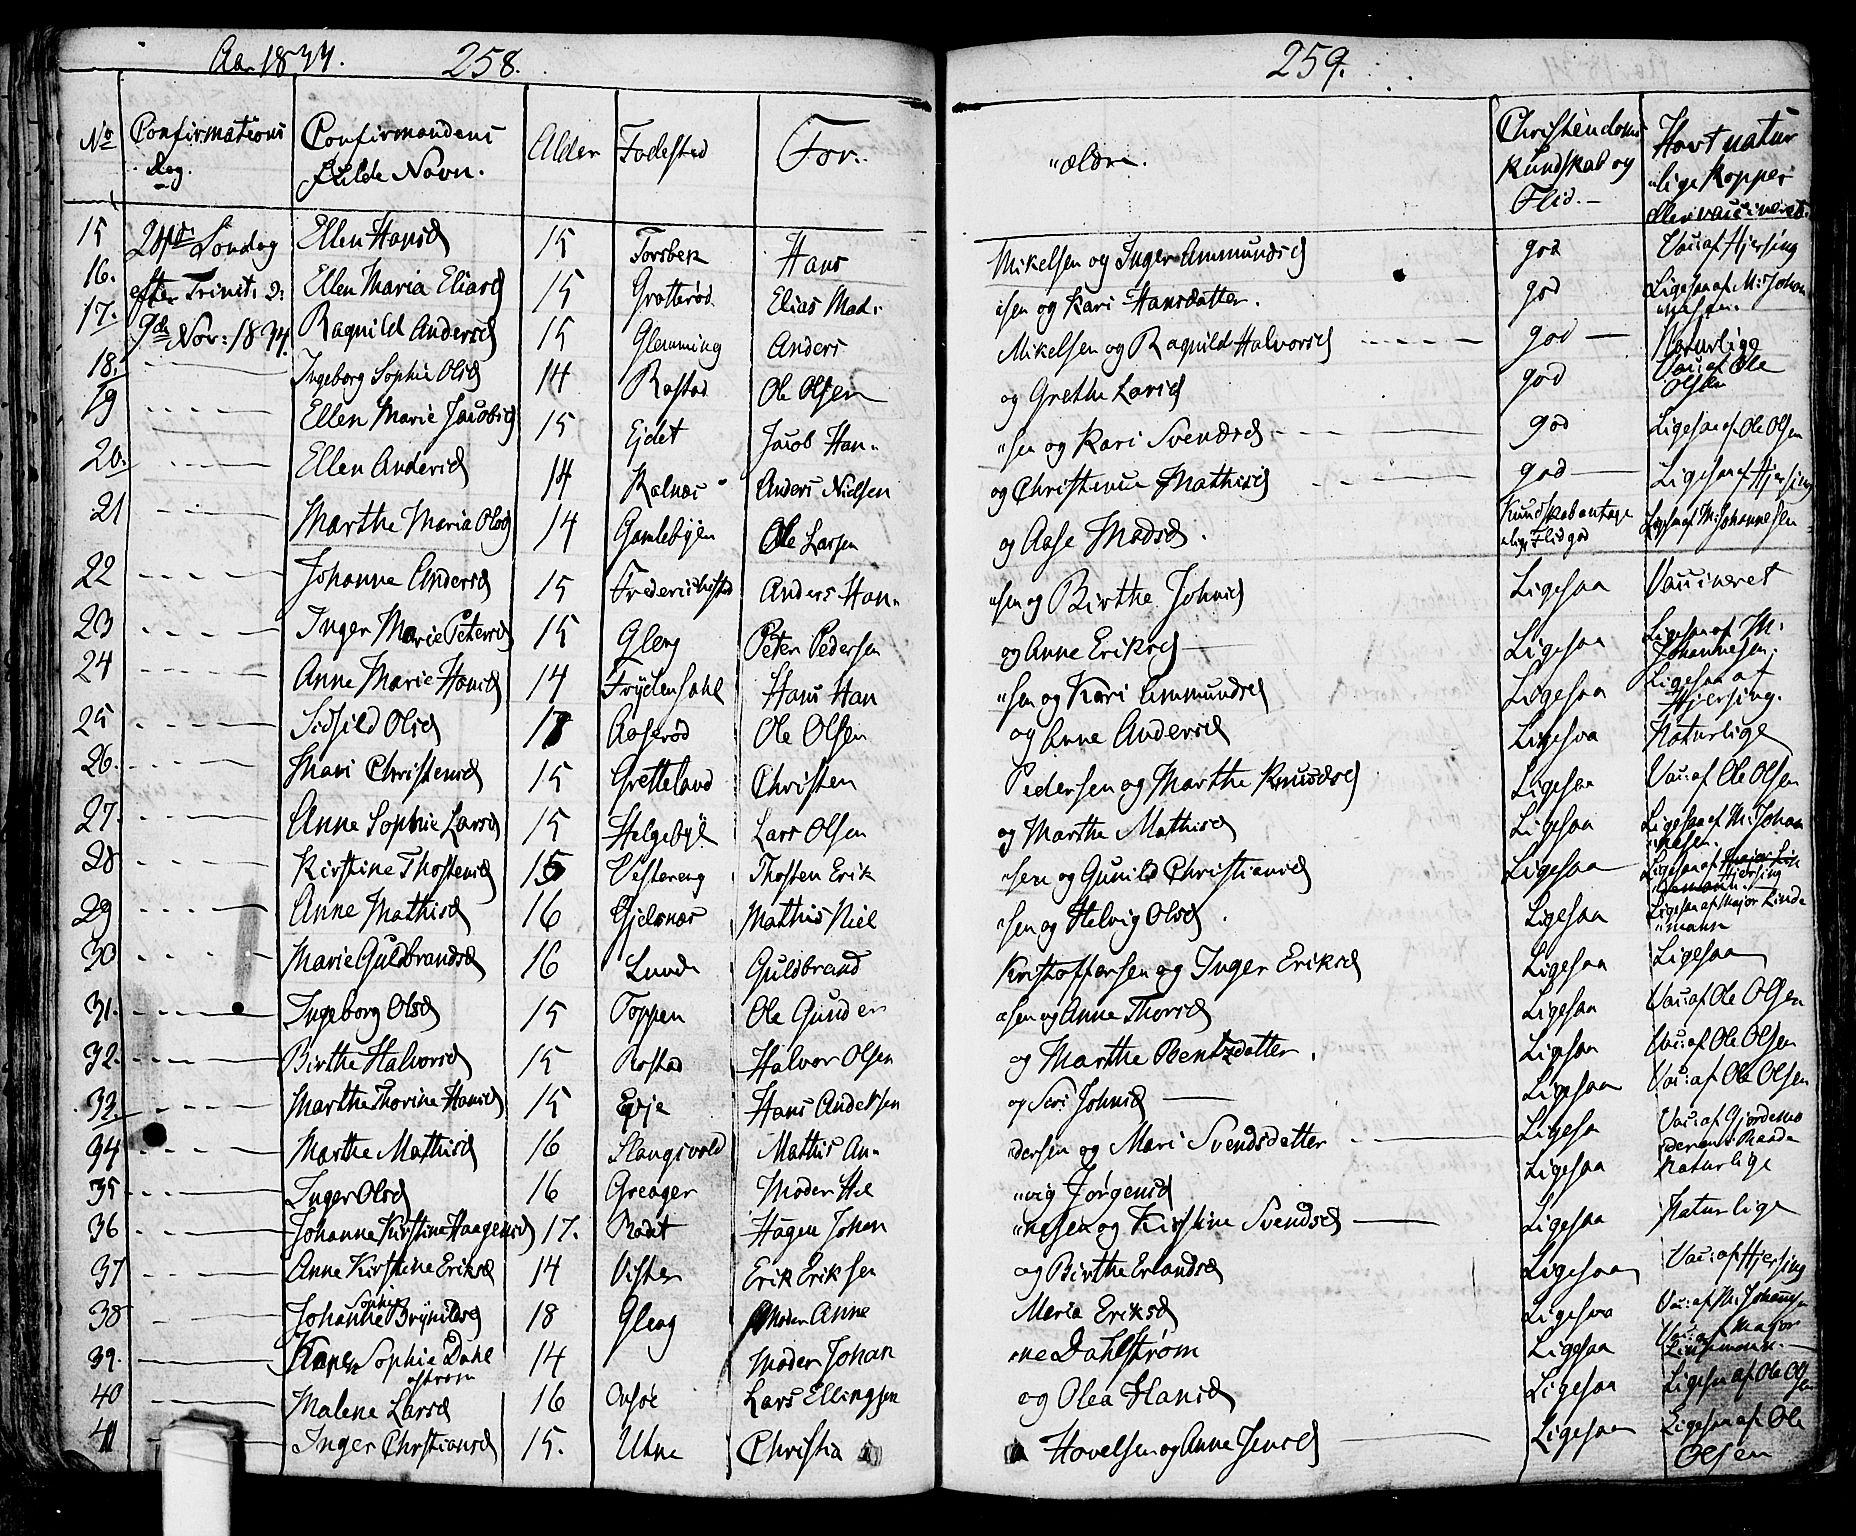 Aa. 1834. 258. 259.
No Confirmations Dag. Confirmandens fulde Navn. Alder Fødested For- "ældre. Christendoms Kundskab og Flid. Havt naturlige Kopper eller vaccineret.
15 24de Søndag Ellen Hansd 15 Torsbek Hans Mikelsen og Inger Ammundsd god Vac: af Hjersing
16. efter Trinit: d: Ellen Maria Eliasd 15 Grotterød Elias Mad- "sen og Kari Hansdatter. god Ligesaa af M: Johannesen.
17. 9de Nov: 1834. Ragnild Andersd 15 Glemming Anders Mikelsen og Ragnild Halvorsd god Naturlige
18. Ingeborg Sophie Olsd 14 Rostad Ole Olsen og Grethe Larsd god Vac: af Ole Olsen
19 Ellen Marie Jacobsd 15 Ejdet Jacob Han- "sen og Kari Svendsd god Ligesaa af Ole Olsen
20. Ellen Andersd 14 Kalnæs Anders Nielsen og Christence Mathisd god Ligesaa af Hjersing
21 Marthe Maria Olsd 14 Gamlebyen Ole Larsen og Aase Madsd. Kundskab antagelige Flid god Ligesaa af M: Johannesen
22 Johanne Andersd 15 Fredrichsstad Anders Han- "sen og Birthe Johnsd Ligesaa Vaccineret
23 Inger Marie Petersd 15 Gleng Peter Pedersen og Anne Eriksd Ligesaa Ligesaa af M: Johannesen.
24 Anne Marie Hansd 14 Frydensdahl Hans Han "sen og Kari Ammundsd Ligesaa Ligesaa af Hjersing.
25 Sidsild Olsd 17 Aaserød Ole Olsen og Anne Andersd Ligesaa Naturlige
26. Mari Christensd 15 Gretteland Christen Pedersen og Marthe Knudsd Ligesaa Vac: af Ole Olsen
27. Anne Sophie Larsd 15 Helgebye Lars Olsen og Marthe Mathisd Ligesaa Ligesaa af M: Johannesen.
28 Kirstine Thostensd 15 Vestereng Thosten Erik "sen og Gunild Christiansd Ligesaa Ligesaa af Hjersing
29 Anne Mathisd 16 Gjelsnæs Mathis Niel "sen og Helvig Olsd. Ligesaa Ligesaa af Major Lindemann
30 Marie Guldbrandsd 16 Lunde Guldbrand Kristoffersen og Inger Eriksd Ligesaa Ligesaa
31. Ingeborg Olsd 15 Toppen Ole Gunder "sen og Anne Thorsd Ligesaa Vac: af Ole Olsen
32. Birthe Halvorsd 15 Rostad Halvor Olsen og Marthe Bentzdatter. Ligesaa Vac: af Ole Olsen
33 Marthe Thorine Hansd 15 Evje Hans Andersen og Seri Johnsd Ligesaa Vac: af Ole Olsen
34 Marthe Mathisd 16 Slangsvold Mathis An- "dersen og Mari Svendsdatter Ligesaa Vac: af Gjordemoderen: Raade
35 Inger Olsd 16 Greager Moder Hel "vig Jørgensd Ligesaa Naturlige
36 Johanne Kirstine Haagensd 17. Rødt Hagen Johan "nesen og Kirstine Svendsd Ligesaa Naturlige
37 Anne Kirstine Eriksd 14 Vister Erik Eriksen og Birthe Erlandsd Ligesaa Vac: af Hjersing
38 Johanne Sophie Brynildsd 18 Gleng Moder Anne Maria Eriksd Ligesaa Vac: af M: Johannesen
39. Karen Sophie Dahlstrøm 14 Moder Johan "ne Dahlstrøm Ligesaa Vac: af Major Lindemann.
40 Malene Larsd 16 Onsøe Lars Ellingsen og Olea Hansd Ligesaa Ligesaa af Ole Olsen
41 Inger Christiansd 15. Utne Christia Hovelsen og Anne Jensd Ligesaa Ligesaa af Ole Olsen